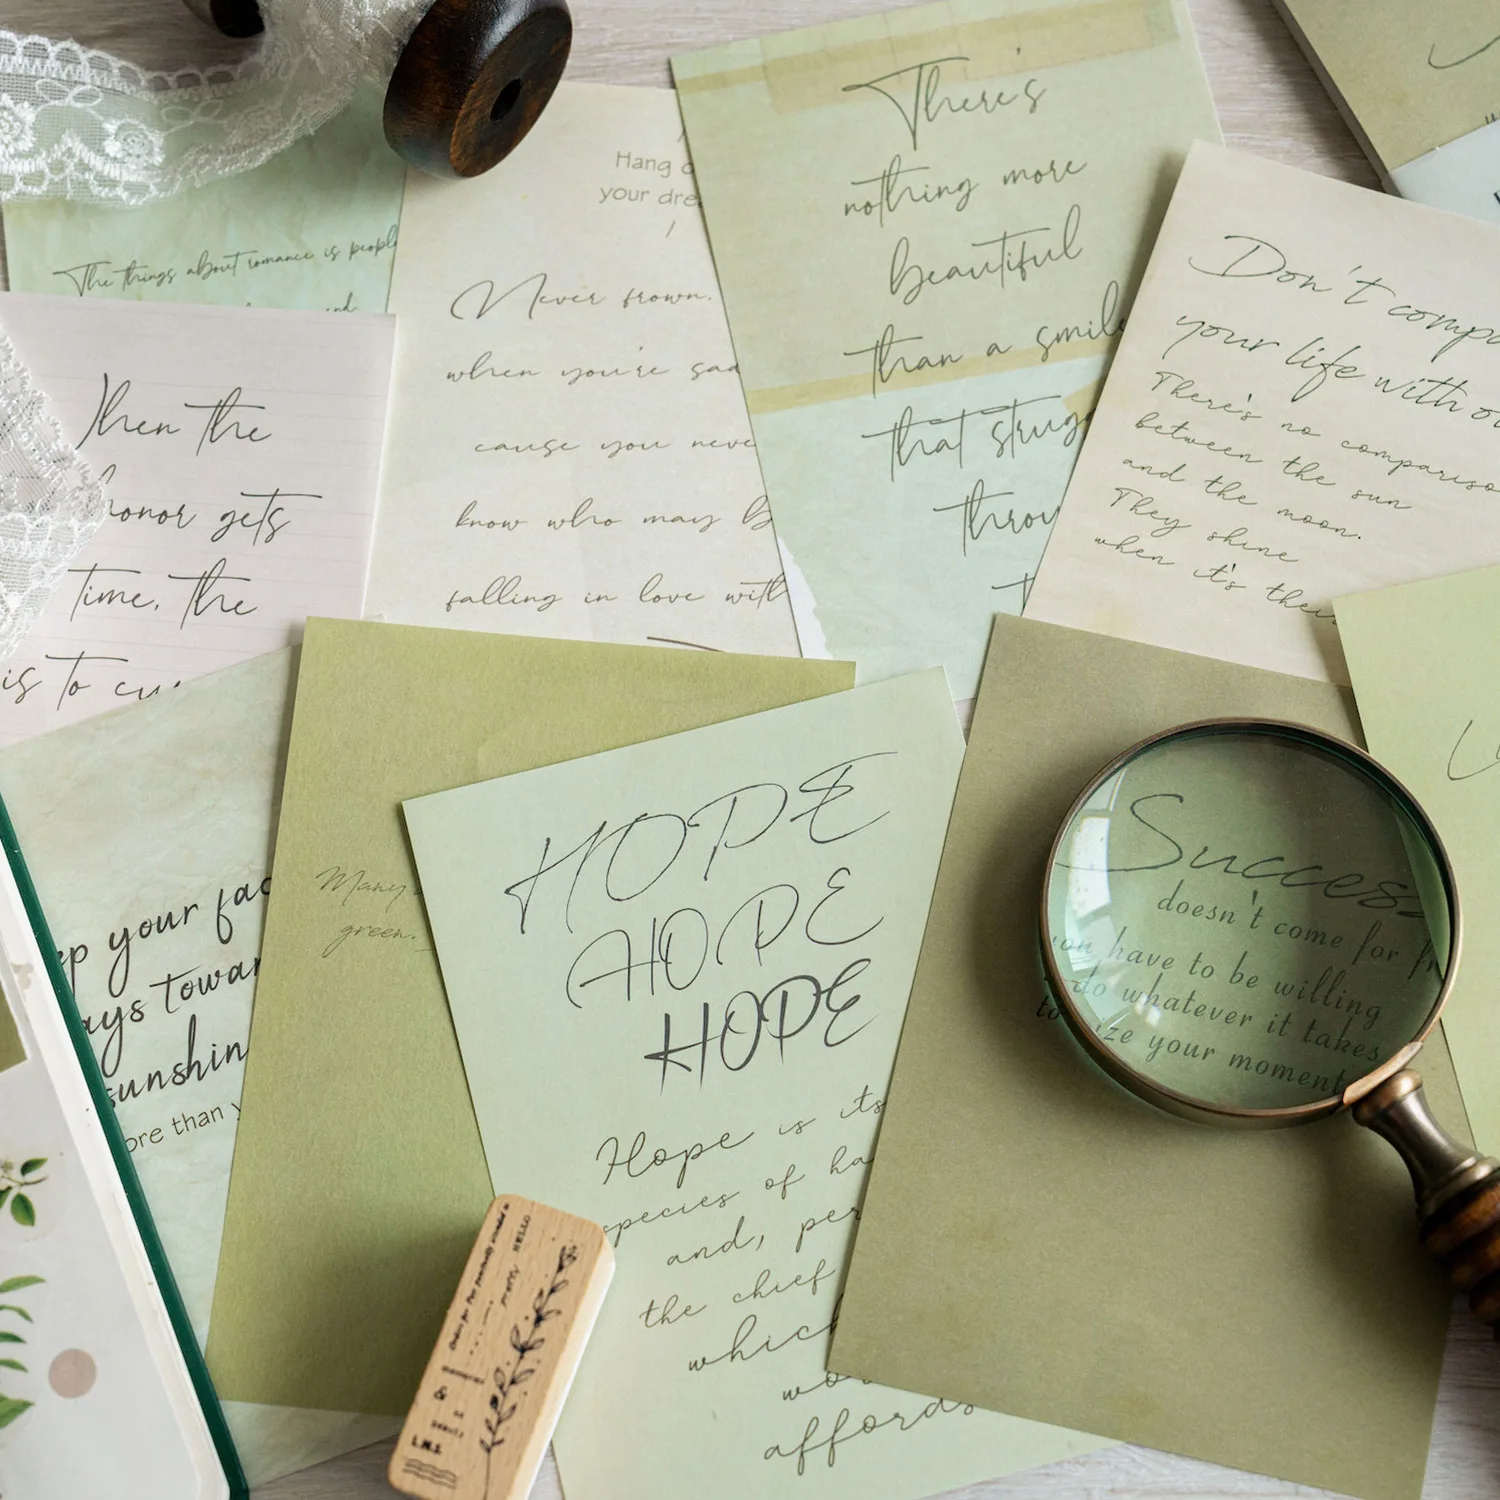 The things about romance is people
and
Hang o
your dre
Never frown.
when you're sad
cause you neve
know who may b
falling in love with
There's
nothing more
beautiful
than a smile
that strug
throu
Don't compa
your life with o
There's no comparison
between the sun
and the moon.
They shine
when it's their
hen the
honor gets
time, the
is to
ep your fac
ays towar
sunshin
ore than y
Many
green.
HOPE
HOPE
HOPE
Hope is its
species of ha
and, per
the chief
which
wo
affords
Success
doesn't come for fr
you have to be willing
to do whatever it takes
to ize your moment
HELLO